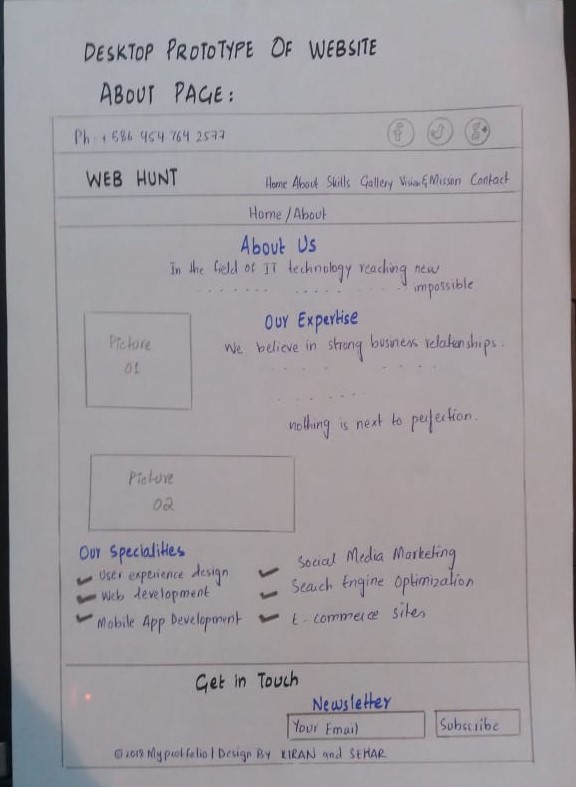 DESKTOP PROTOTYPE OF WEBSITE
ABOUT PAGE:
Ph : +586 454 764 2577
WEB HUNT
Home About Skills Gallery Vision&Misson Contact
Home / About
About Us
In the field of IT technology reaching new
impossible
Our Expertise
Picture
01
We believe in strong business relationships.
nothing is next to perfection.
Picture
02
Our Specialities
User experience design
Web development
Mobile App Development
Social Media Marketing
Seach Engine Optimization
E-commerce sites
Get in Touch
Newsletter
Your Email
Subscribe
©2018 Myportfolio | Design By KIRAN and SEHAR